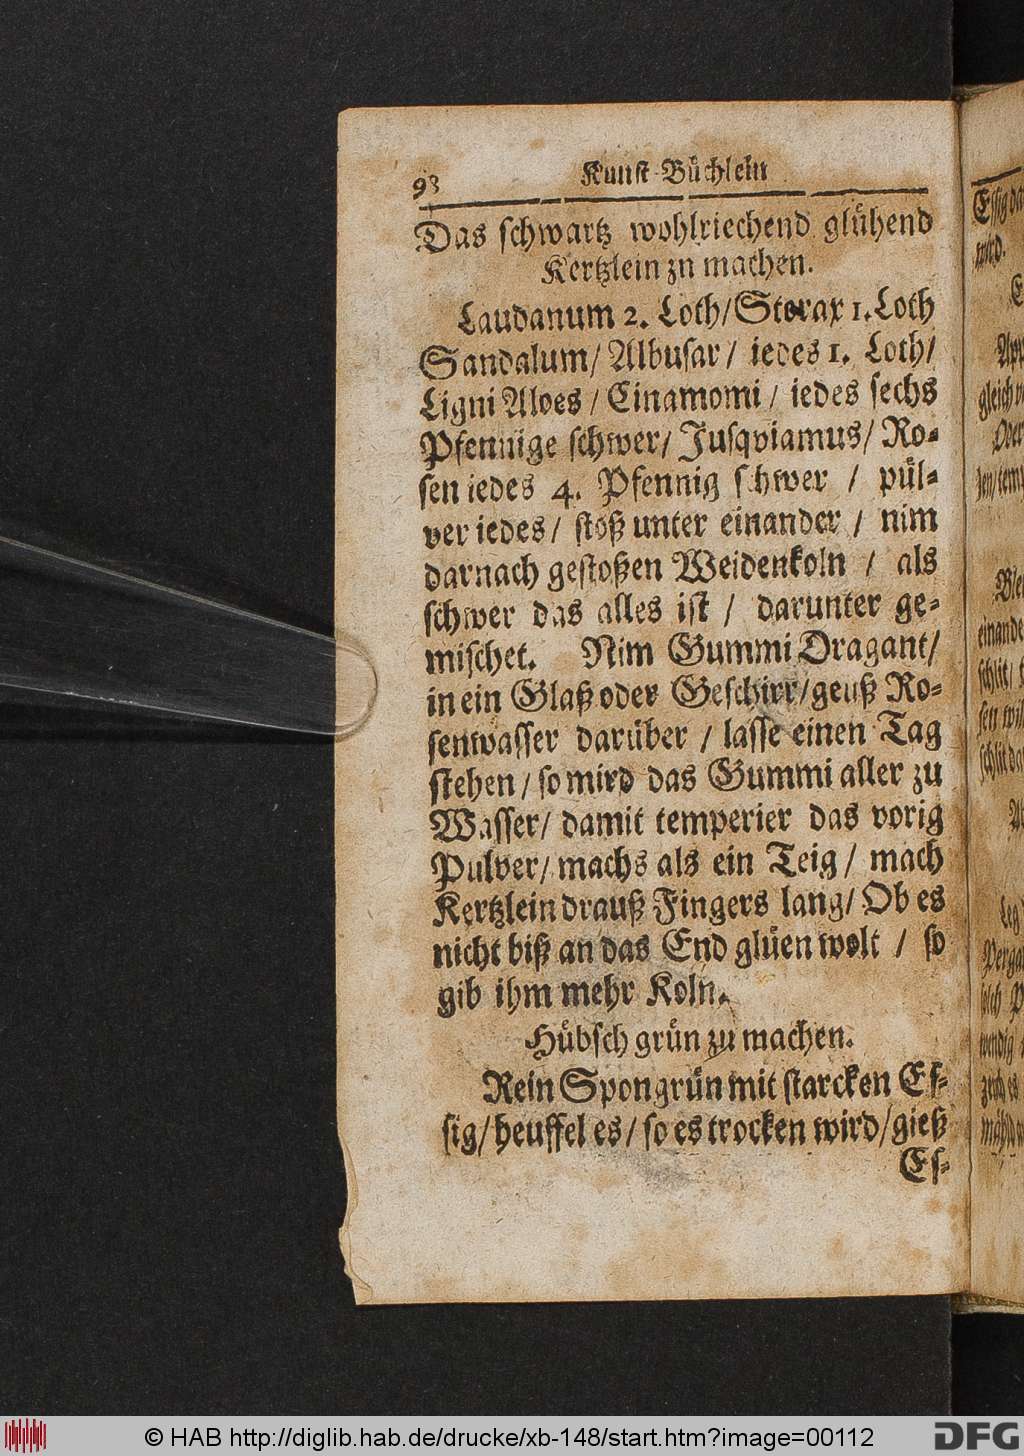 98 Kunst-Büchlein
Das schwartz wohlriechend glühend
Kertzlein zu machen.
Laudanum 2. Loth/ Storax 1. Loth
Sandalum/ Albusar/ iedes 1. Loth/
Ligni Aloes/ Cinamomi/ iedes sechs
Pfennige schwer/ Jusqviamus/ Ro-
sen iedes 4. Pfennig schwer / pül-
ver iedes/ stoß unter einander / nim
darnach gestoßen Weidenkoln / als
schwer das alles ist / darunter ge-
mischet. Nim Gummi Dragant/
in ein Glaß oder Geschirr/ geuß Ro-
senwasser darüber / lasse einen Tag
stehen/ so wird das Gummi aller zu
Wasser/ damit temperier das vorig
Pulver/ machs als ein Teig/ mach
Kertzlein drauß Fingers lang/ Ob es
nicht biß an das End glüen wolt / so
gib ihm mehr Koln.
Hübsch grün zu machen.
Rein Spongrün mit starcken Es-
sig/ heuffel es/ so es trocken wird/ gieß
Es-
Essig da
wird.
gleich
einande
© HAB http://diglib.hab.de/drucke/xb-148/start.htm?image=00112
DFG